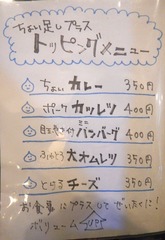 ちょい足しプラス
トッピングメニュー
ちょい カレー 350円
ポーク カツレツ 400円
ミニ
ハンバーグ 400円
ふわとろ 大オムレツ 350円
とろける チーズ 350円
お食事にプラスして ぜいたくに!
ボリュームUP